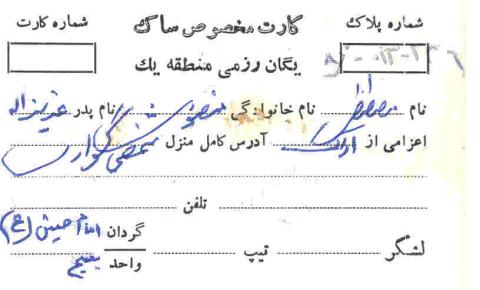 شماره پلاک کارت مخصوص ساک شماره کارت
یگان رزمی منطقه یك
نام مصطفی نام خانوادگی منصوری نام پدر عزیزاله
اعزامی از اراک آدرس کامل منزل
تلفن
لشگر تیپ گردان امام حسین (ع)
واحد بسیج